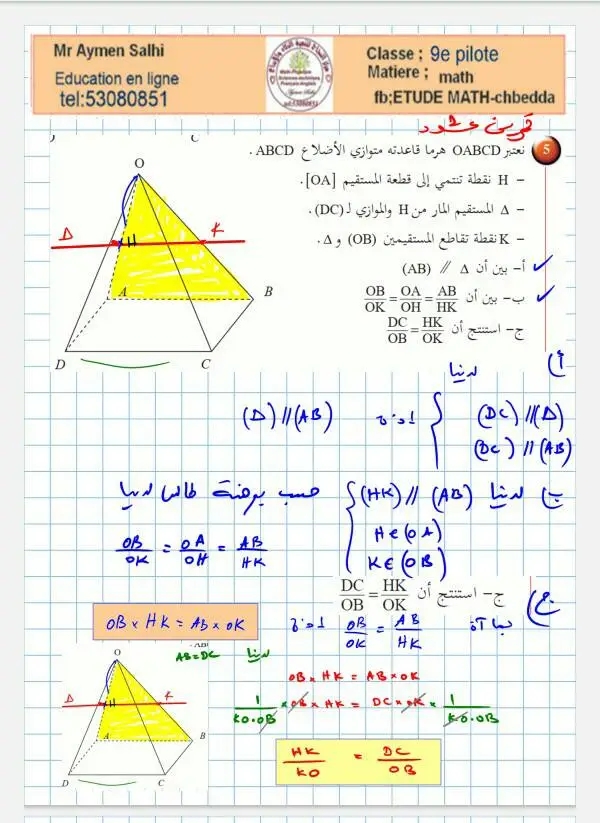 Mr Aymen Salhi
Education en ligne
tel:53080851
Classe ; 9e pilote
Matiere ; math
fb;ETUDE MATH-chbedda
5
نعتبر OABCD هرما قاعدته متوازي الأضلاع ABCD .
– H نقطة تنتمي إلى قطعة المستقيم [OA].
– Δ المستقيم المار من H والموازي لـ (DC).
– K نقطة تقاطع المستقيمين (OB) و Δ.
أ- بين أن Δ // (AB)
ب- بين أن OB/OK = OA/OH = AB/HK
ج- استنتج أن DC/OB = HK/OK
O
Δ
H
K
A
B
D
C
أ) لدينا
(DC) // (Δ)
(DC) // (AB)
إذن (Δ) // (AB)
ب) لدينا (HK) // (AB)
H ∈ (OA)
K ∈ (OB)
حسب مبرهنة طالس لدينا
OB/OK = OA/OH = AB/HK
ج- استنتج أن DC/OB = HK/OK
ج)
بما أن OB/OK = AB/HK إذن
OB × HK = AB × OK
لدينا AB = DC
OB × HK = AB × OK
1/KO·OB × OB × HK = DC × OK × 1/KO·OB
HK/KO = DC/OB
O
Δ
H
K
A
B
D
C